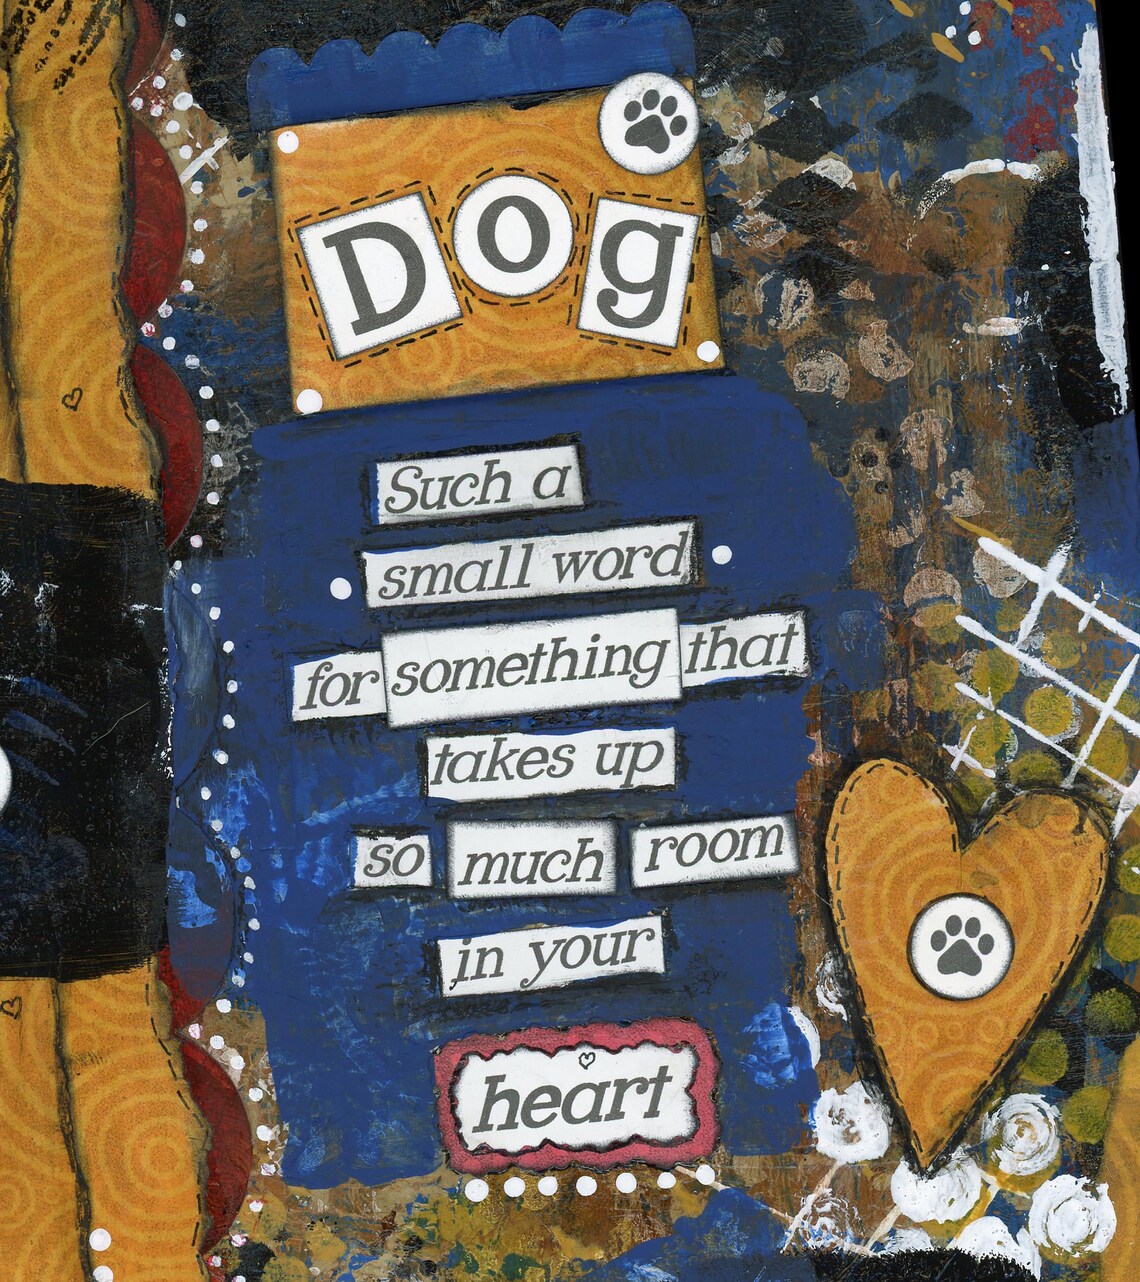 Dog
Such a
small word
for something that
takes up
so much room
in your
heart